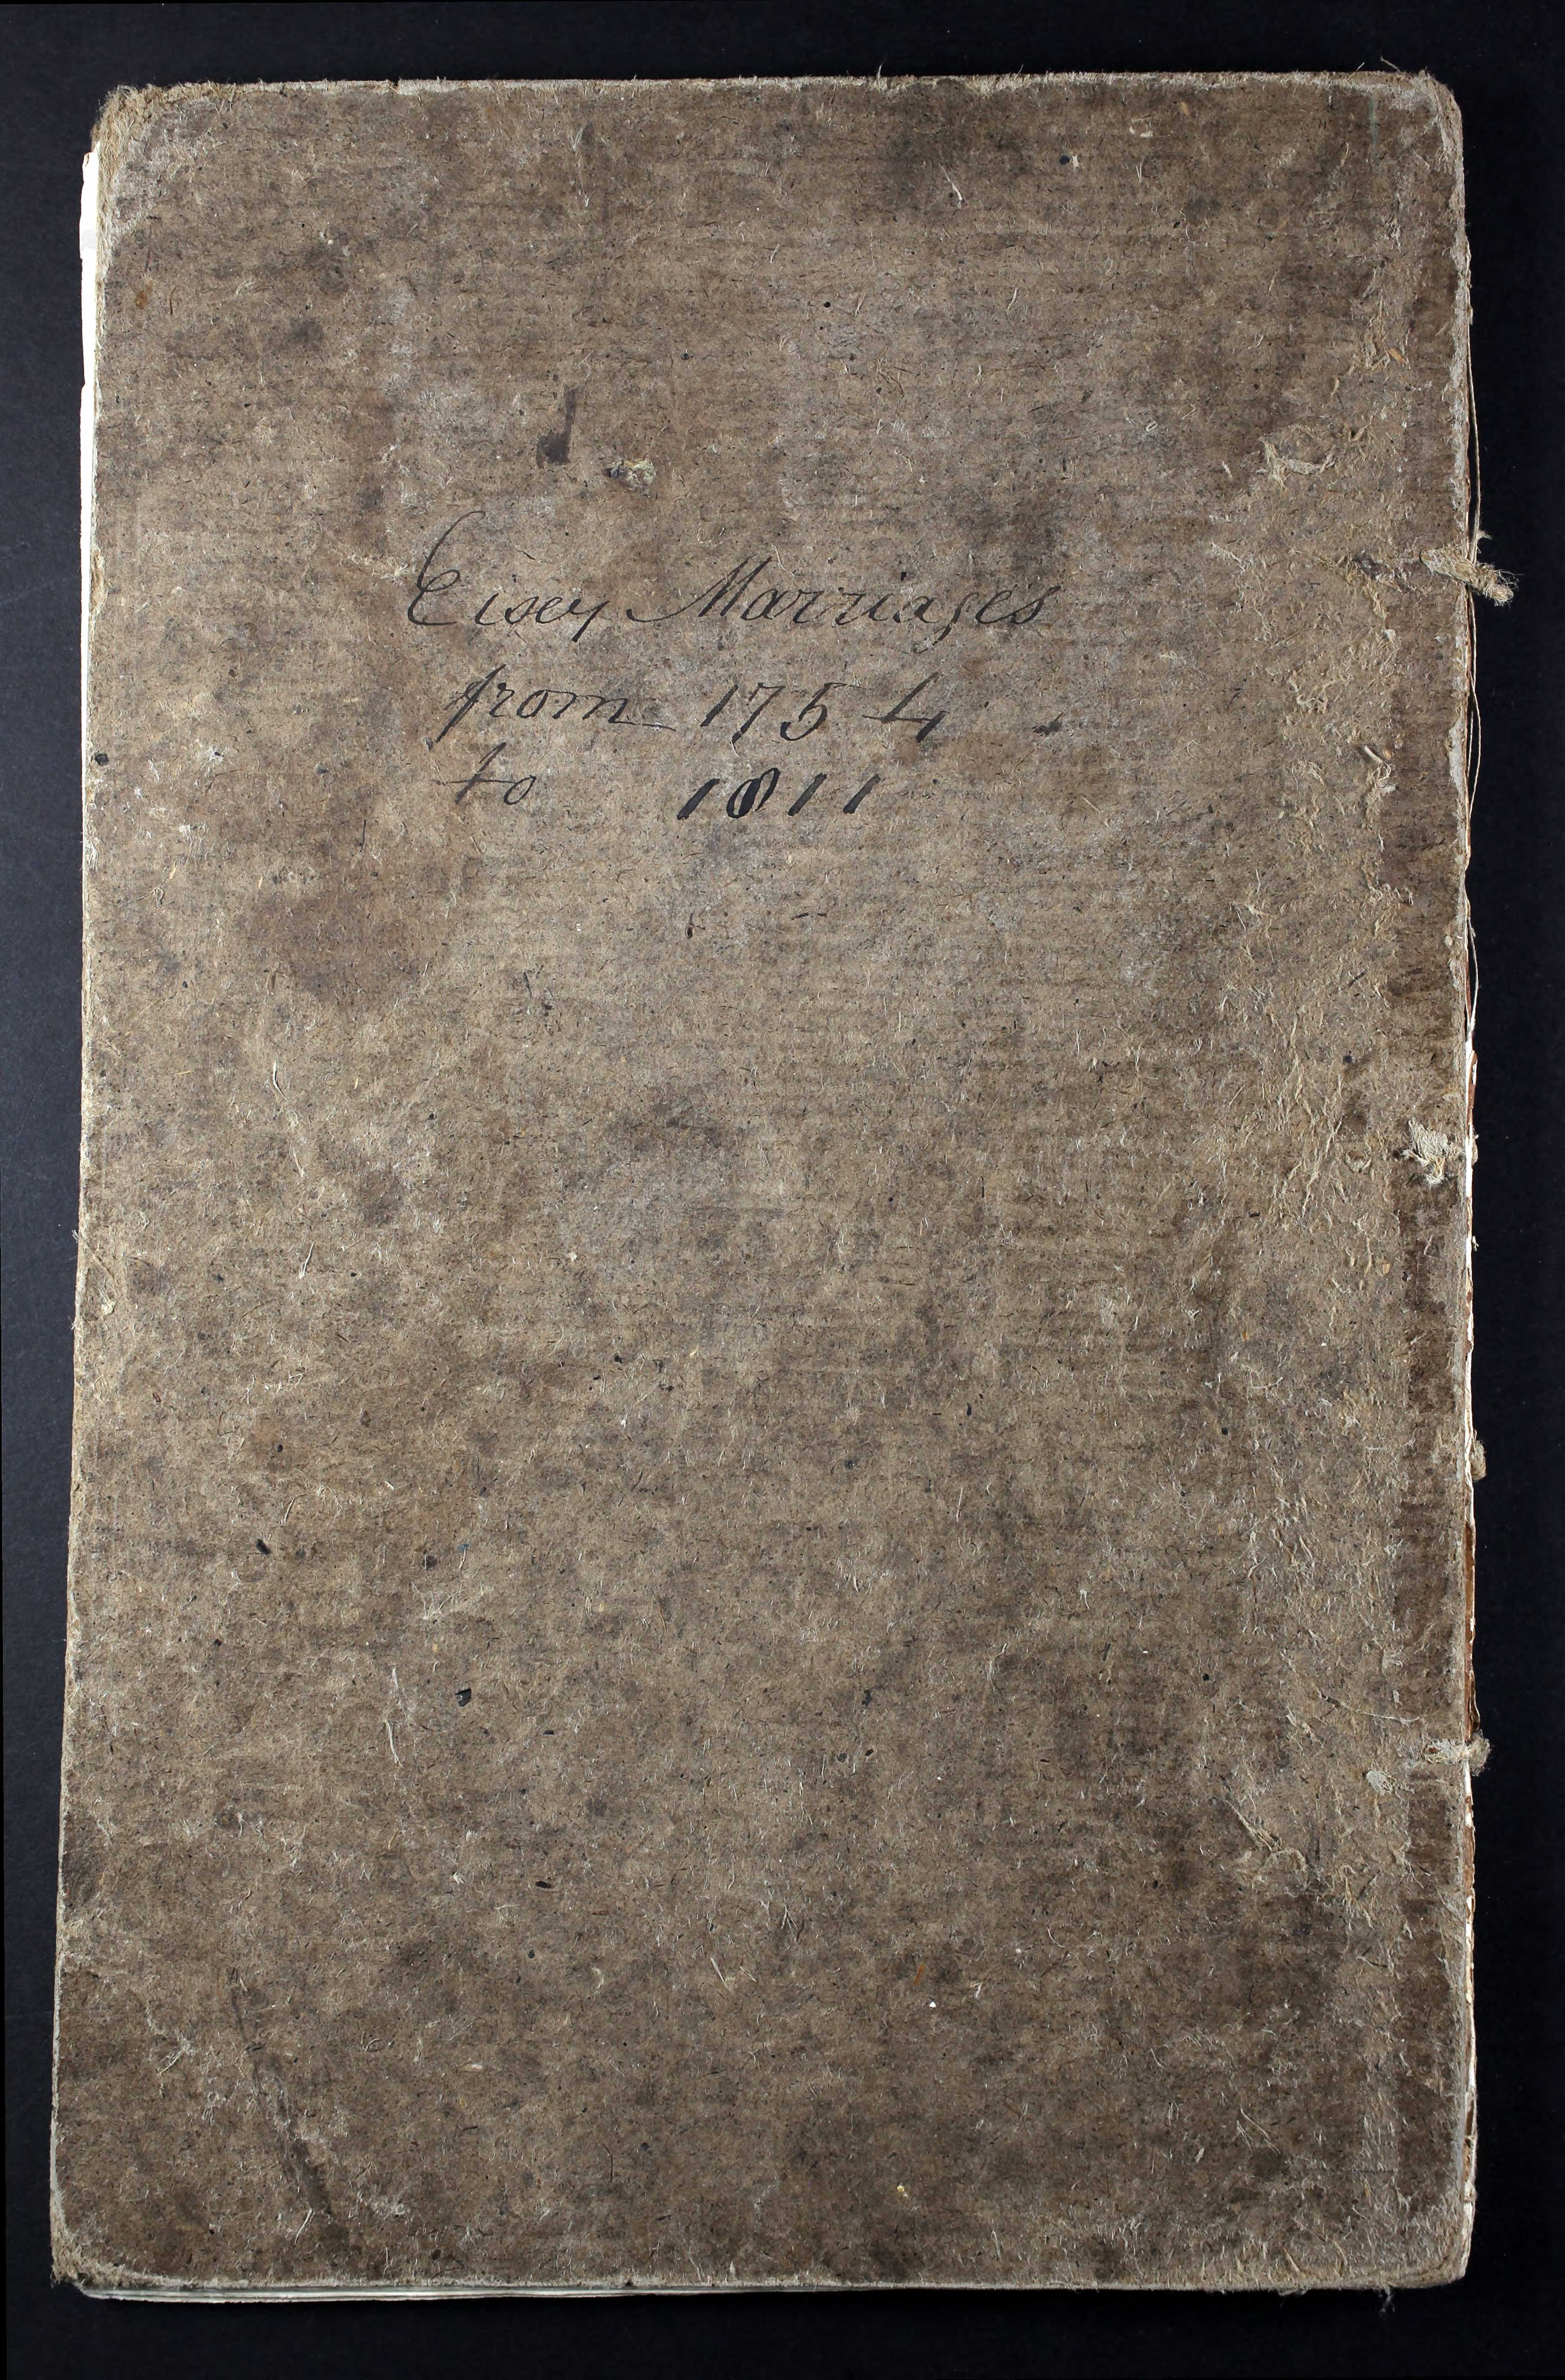 Eisey Marriages
from 1754
to 1811